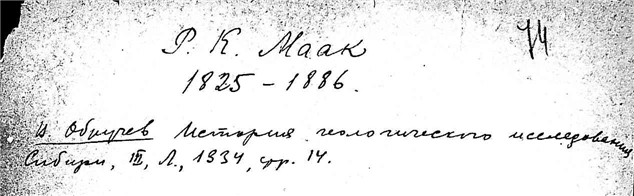 Р. К. Маак
74
1825 – 1886.
И. Обручев История геологического исследования
Сибири, III, Л., 1934, стр. 14.